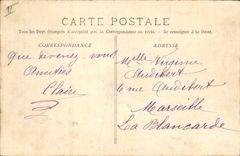 CARTE POSTALE
Tous les Pays étrangers n'acceptent pas la Correspondance au recto. - Se renseigner à la Poste.
CORRESPONDANCE
ADRESSE
Que devenez-vous
Amitiés
Claire
Melle Virginie
Audibert
6 rue Audibert
Marseille
La Blancarde